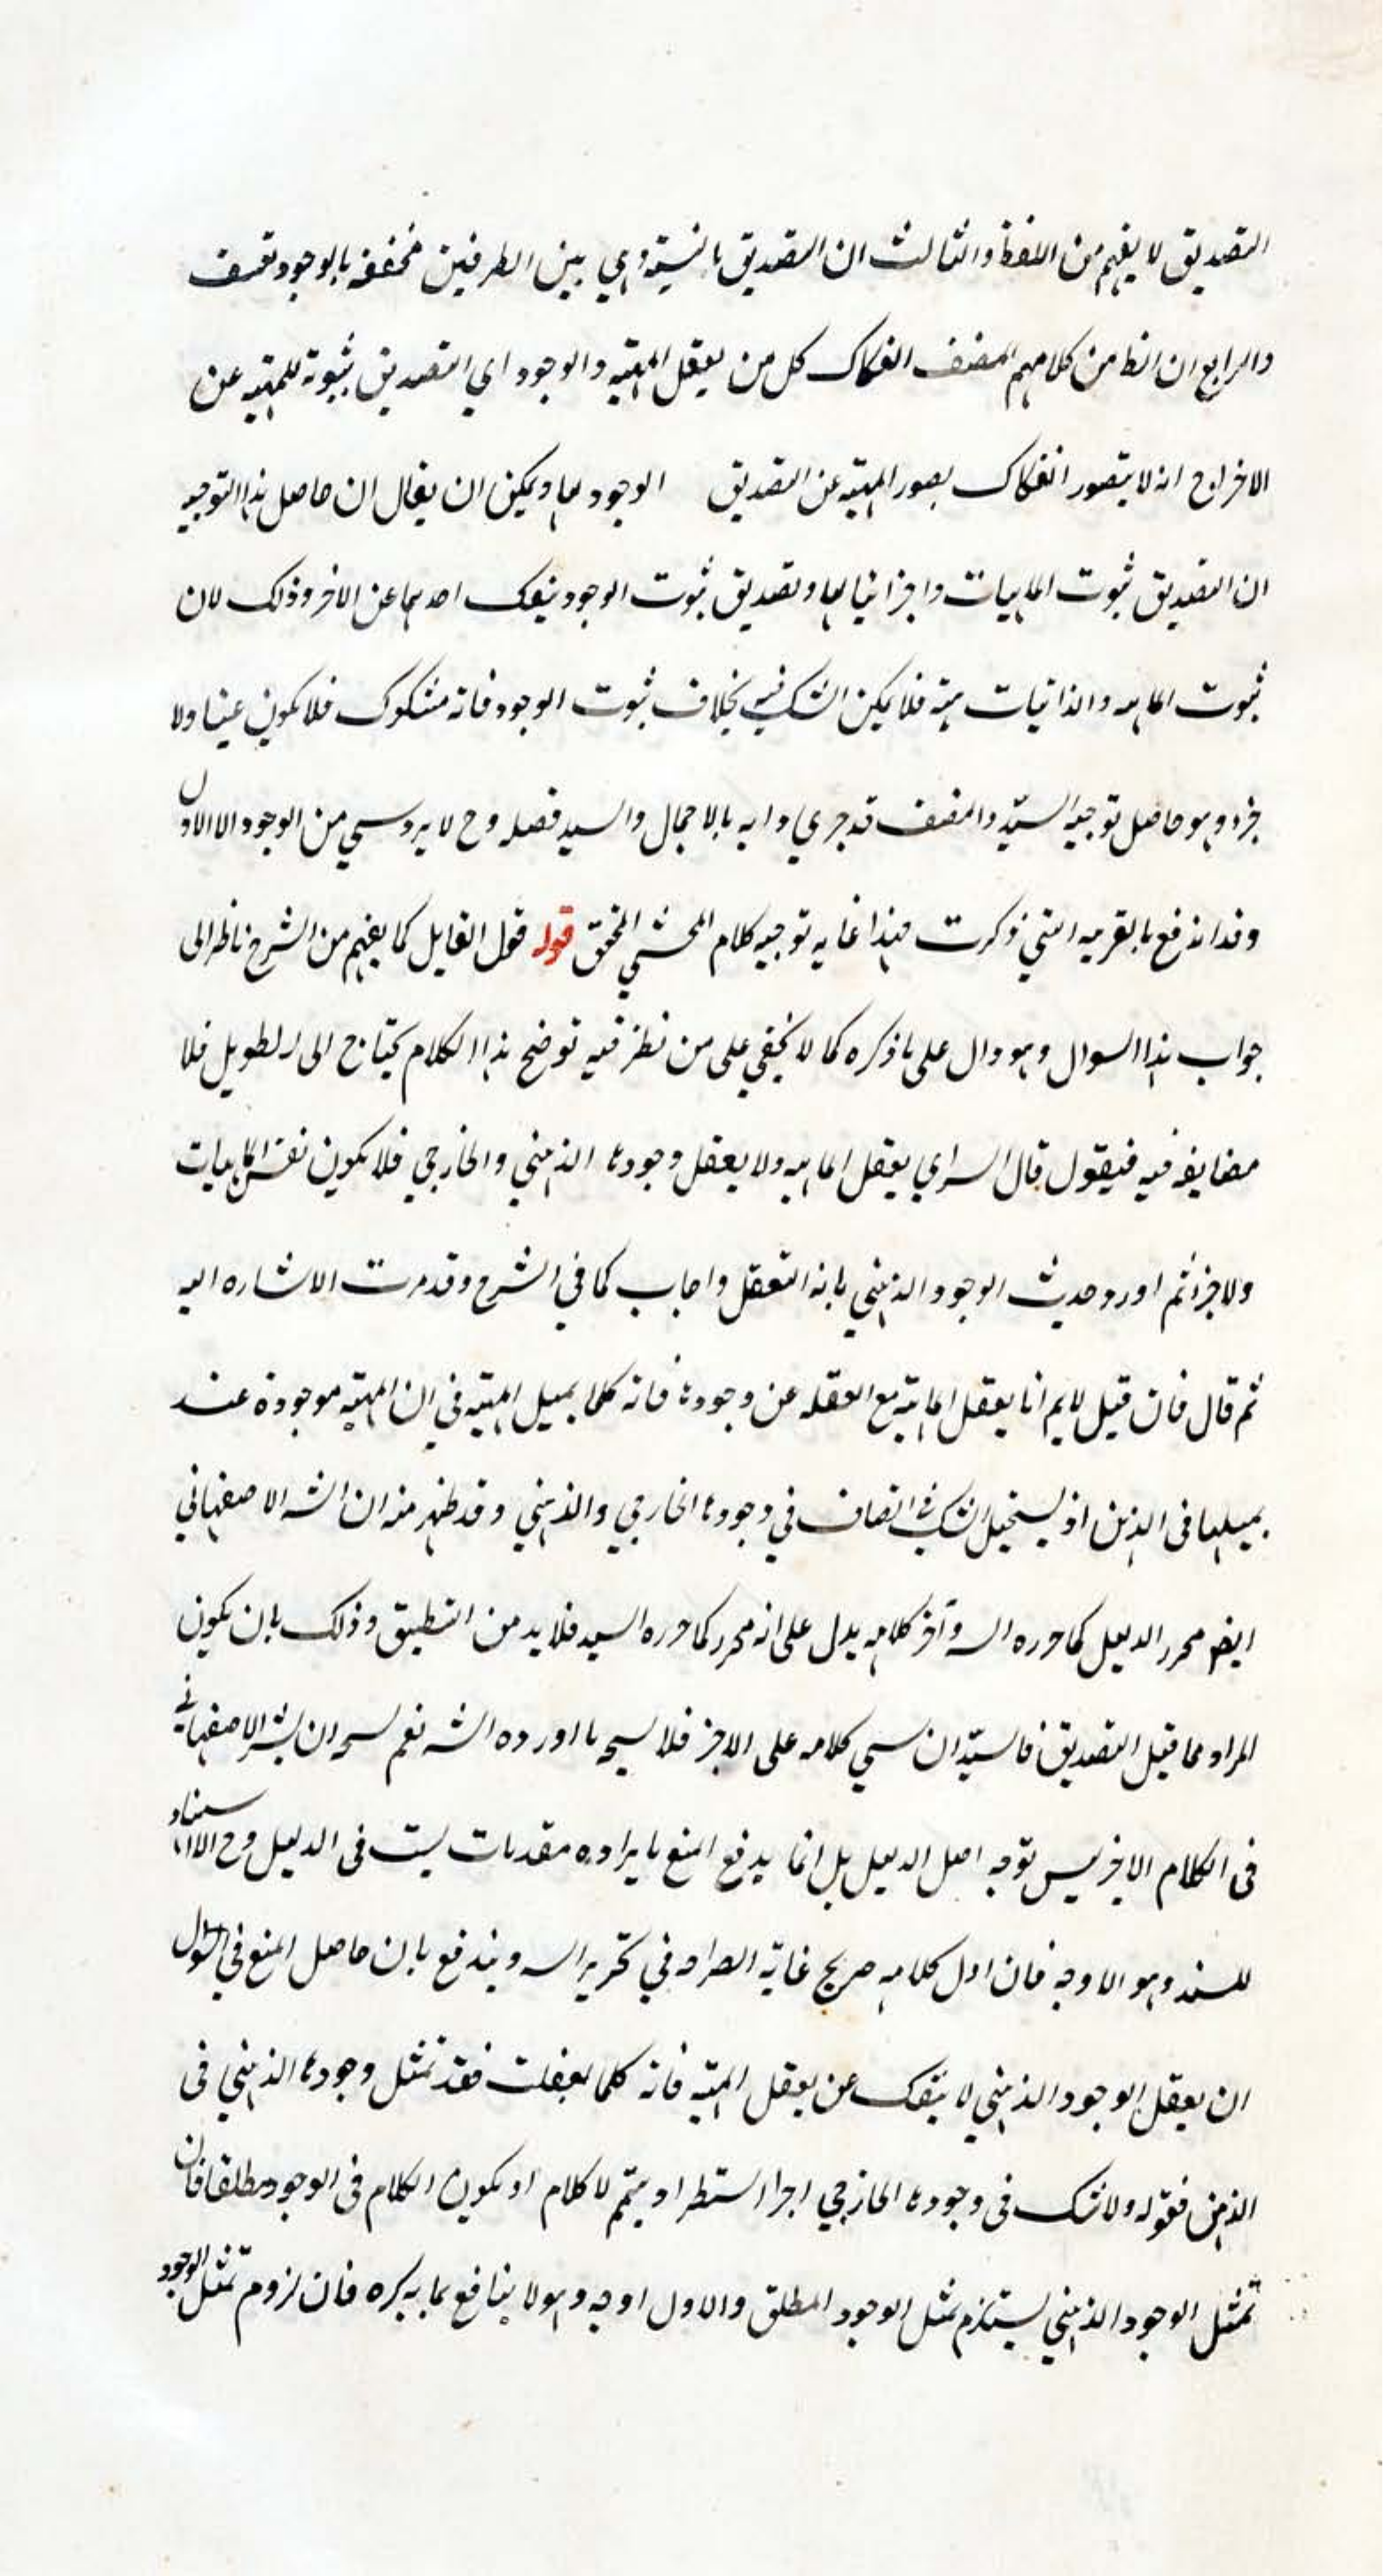 التصديق لا يفهم من اللفظ والثالث ان التصديق بالنسبة وهي بين الطرفين مخففه بالوجود تعسف
والرابع ان الظ من كلامهم المصنف انفكاك كل من يعقل المهية والوجود اي التصديق بثبوته للمهيه عن
الاخر اوح انه لا يتصور انفكاك بصور المهيه عن التصديق الوجود لها ويمكن ان يقال ان حاصل هذا التوجيه
ان التصديق ثبوت الماهيات واجزائها لها وتصديق ثبوت الوجود ينفك احدهما عن الاخر وذلك لان
ثبوت الماهيه والذاتيات بينة فلا يمكن الشك فيه بخلاف ثبوت الوجود فانه مشكوك فلا يكون عينا ولا
جزء وهو حاصل توجيه السيد والمصنف قد جري دابه بالاجمال والسيد فصله وح لا يرد من الوجوه الا الاول
وقد اندفع بالقريه التي ذكرت فهذا غايه توجيه كلام المحشي المحقق قوله قول القايل كما يفهم من الشرح ناظر الى
جواب هذا السوال وهو دال على ما ذكره كما لا يخفي على من نظر فيه توضح هذا الكلام يحتاج الى تطويل فلا
مضايقه فيه فيقول قال السراي يعقل الماهيه ولا يعقل وجودها الذهني والخارجي فلا يكون نفس الماهيات
ولا جزء ثم اورد حديث الوجود الذهني بانه التعقل واجاب كما في الشرح وقد مرت الاشاره اليه
ثم قال فان قيل لانم انا يعقل الماهية مع الغفله عن وجودها فانه كلما المهيه في ان المهيه موجودة عند
في الذهن اذ يستحيل الشك في وجودها الخارجي والذهني وقد ظهر منه ان الشه الاصفهاني
ايضا محرر الدليل كما حرره الشه وآخر كلامه يدل على انه محرر كما حرره السيد فلا بد من التطبيق وذلك بان يكون
المراد مما قيل التصديق فالسيد ان كلامه على الاخر فلا ما اورده الشه نعم ان الشه الاصفهاني
في الكلام الاخر ليس توجه اصل الدليل بل انما يدفع المنع بايراده مقدمات ليست في الدليل وح الا
للسند وهو الاوجه فان اول كلامه صريح غاية الصراحه في تحرير الشه ويندفع بان حاصل المنع في السؤال
ان يعقل الوجود الذهني لا ينفك عن يعقل المهيه فانه كلما يعقلت فقد تمثل وجودها الذهني في
الذهن فقوله ولا شك في وجودها الخارجي اجرا استطرا وتيمم لا كلام او يكون الكلام في الوجود مطلقا فان
تمثل الوجود الذهني يستلزم تمثل الوجود المطلق والاول اوجه وهو لا ينافع بما يذكره فان لزوم تمثل الوجود